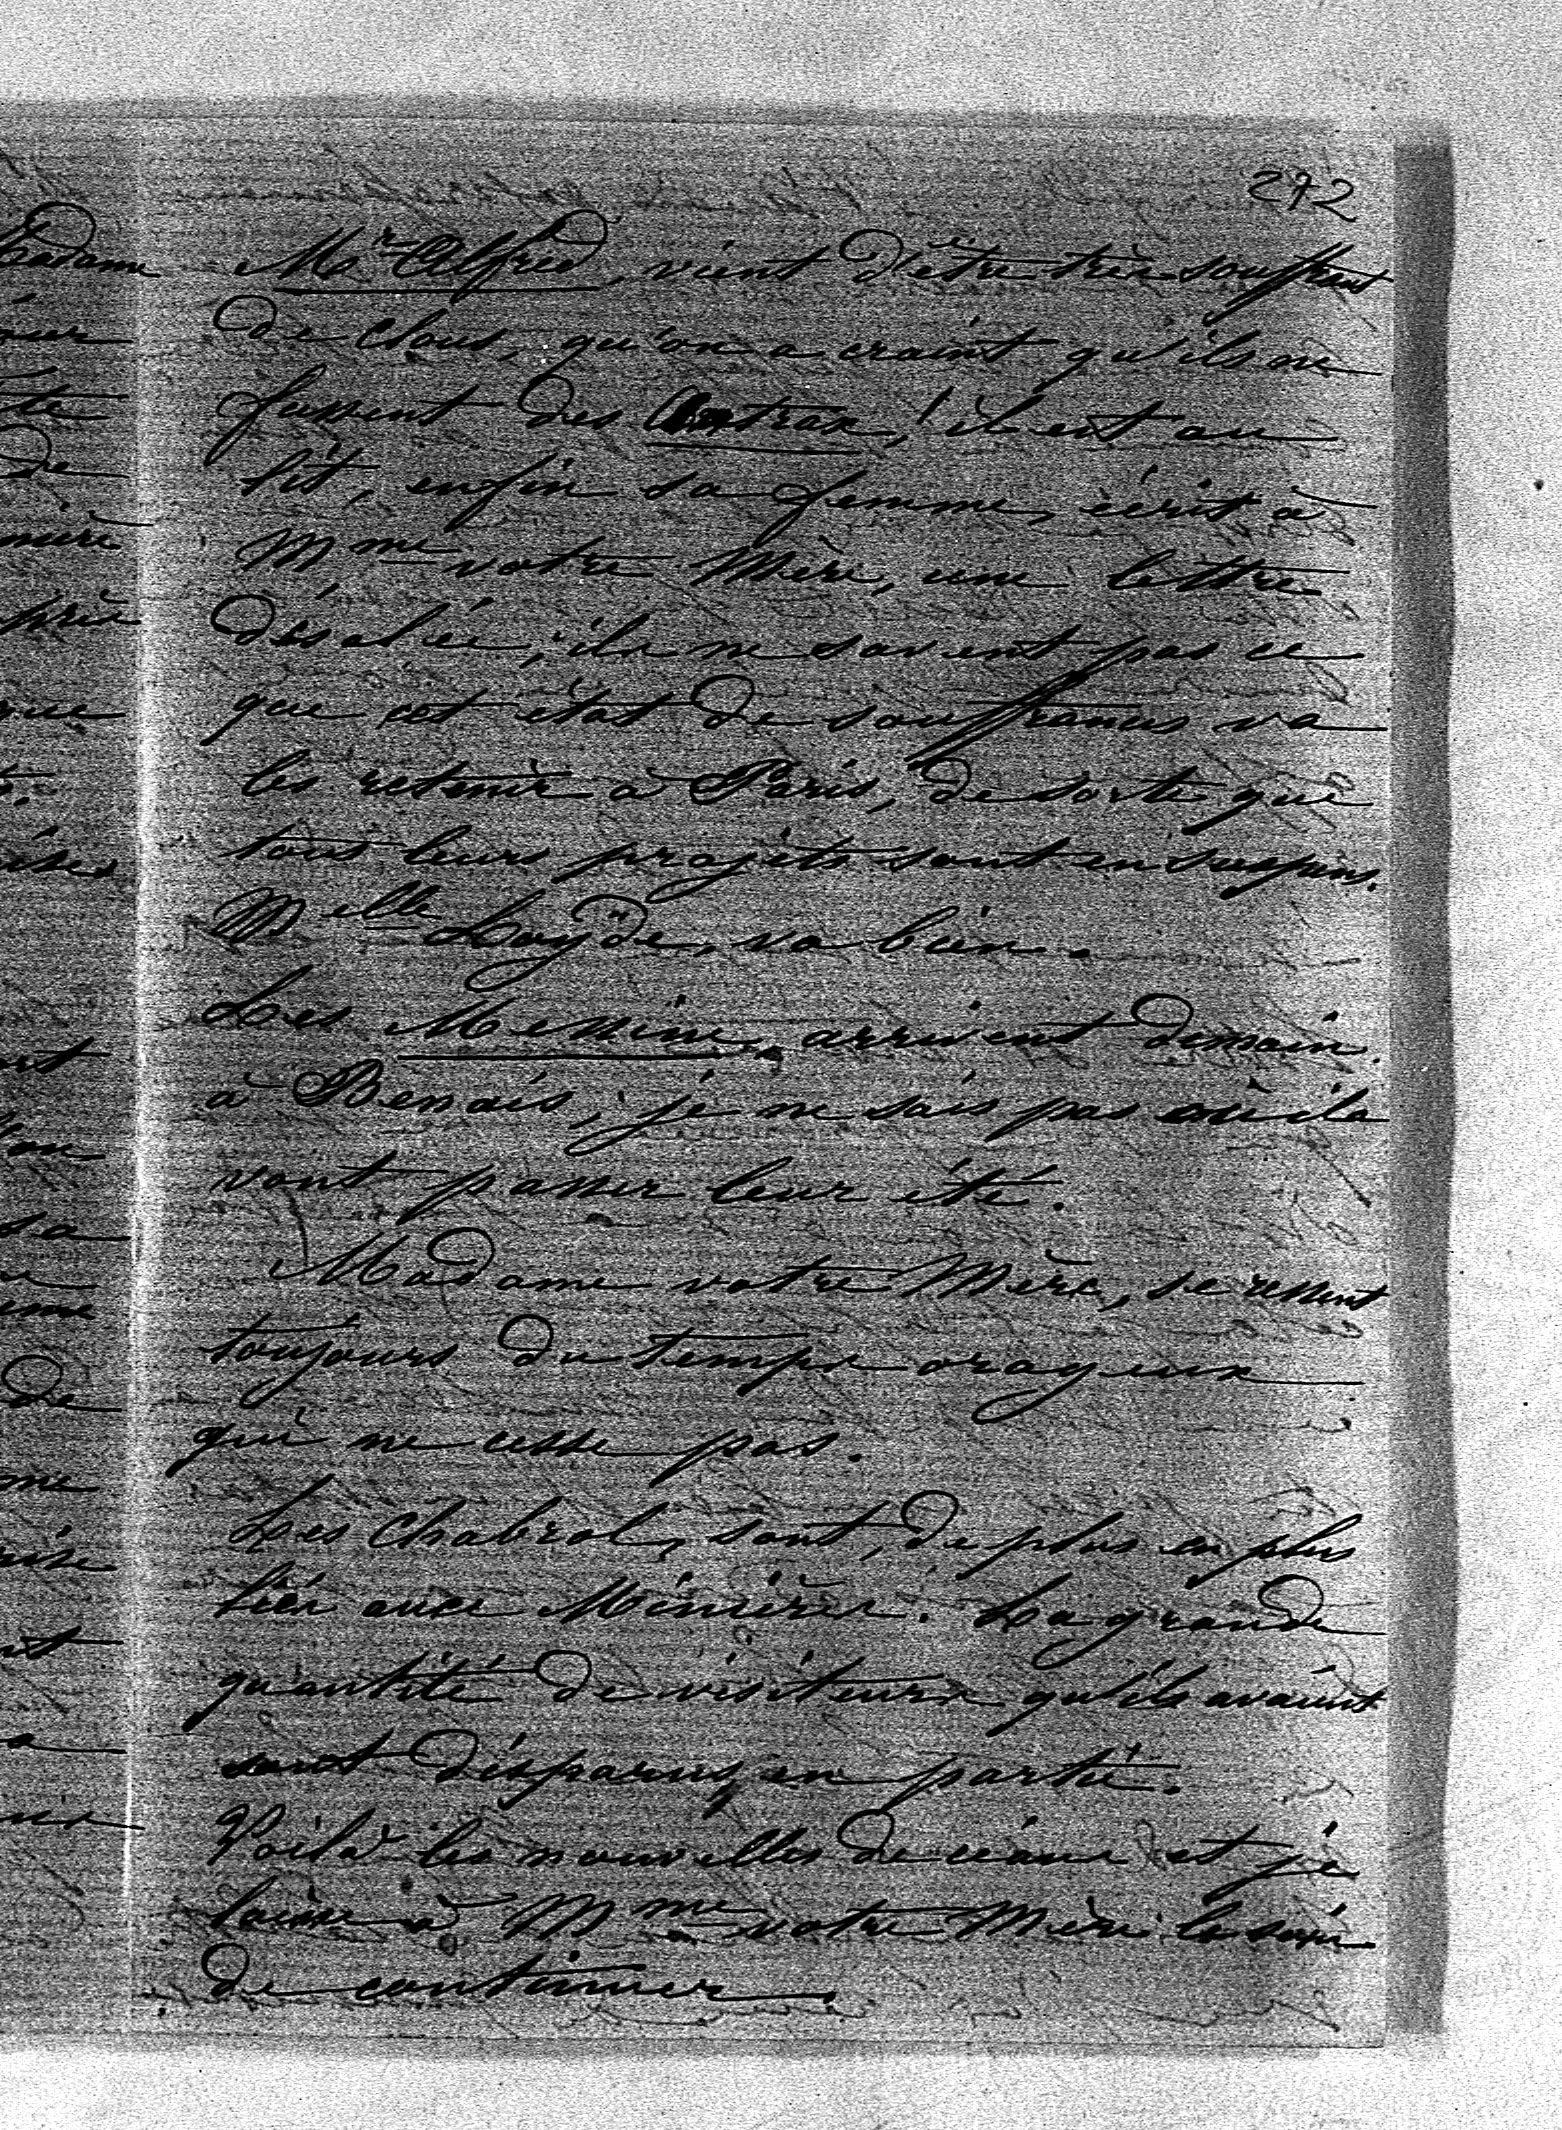 272
Mr Alfred, vient d'être très souffrant
de clous, qu'on a craint qu'ils ne
fussent des Antrax, il est au
lit, enfin sa femme, écrit à
Mme votre Mère, une lettre
désolée, ils ne savent pas ce
que cet état de souffrances va
les retenir à Paris, de sorte que
tous leurs projets sont en suspens.
Melle Loÿde, va bien.
Les Messine, arrivent demain
à Benais, je ne sais pas où ils
vont passer leur été.
Madame votre Mère, se ressent
toujours du temps orageux
qui ne cesse pas.
Les Chabrol, sont, de plus en plus
bien aux Minières. La grande
quantité de visiteurs qu'ils avaient
sont disparus, en partie.
Voilà les nouvelles de céans et je
laisse à Mme votre Mère le soin
de continuer.